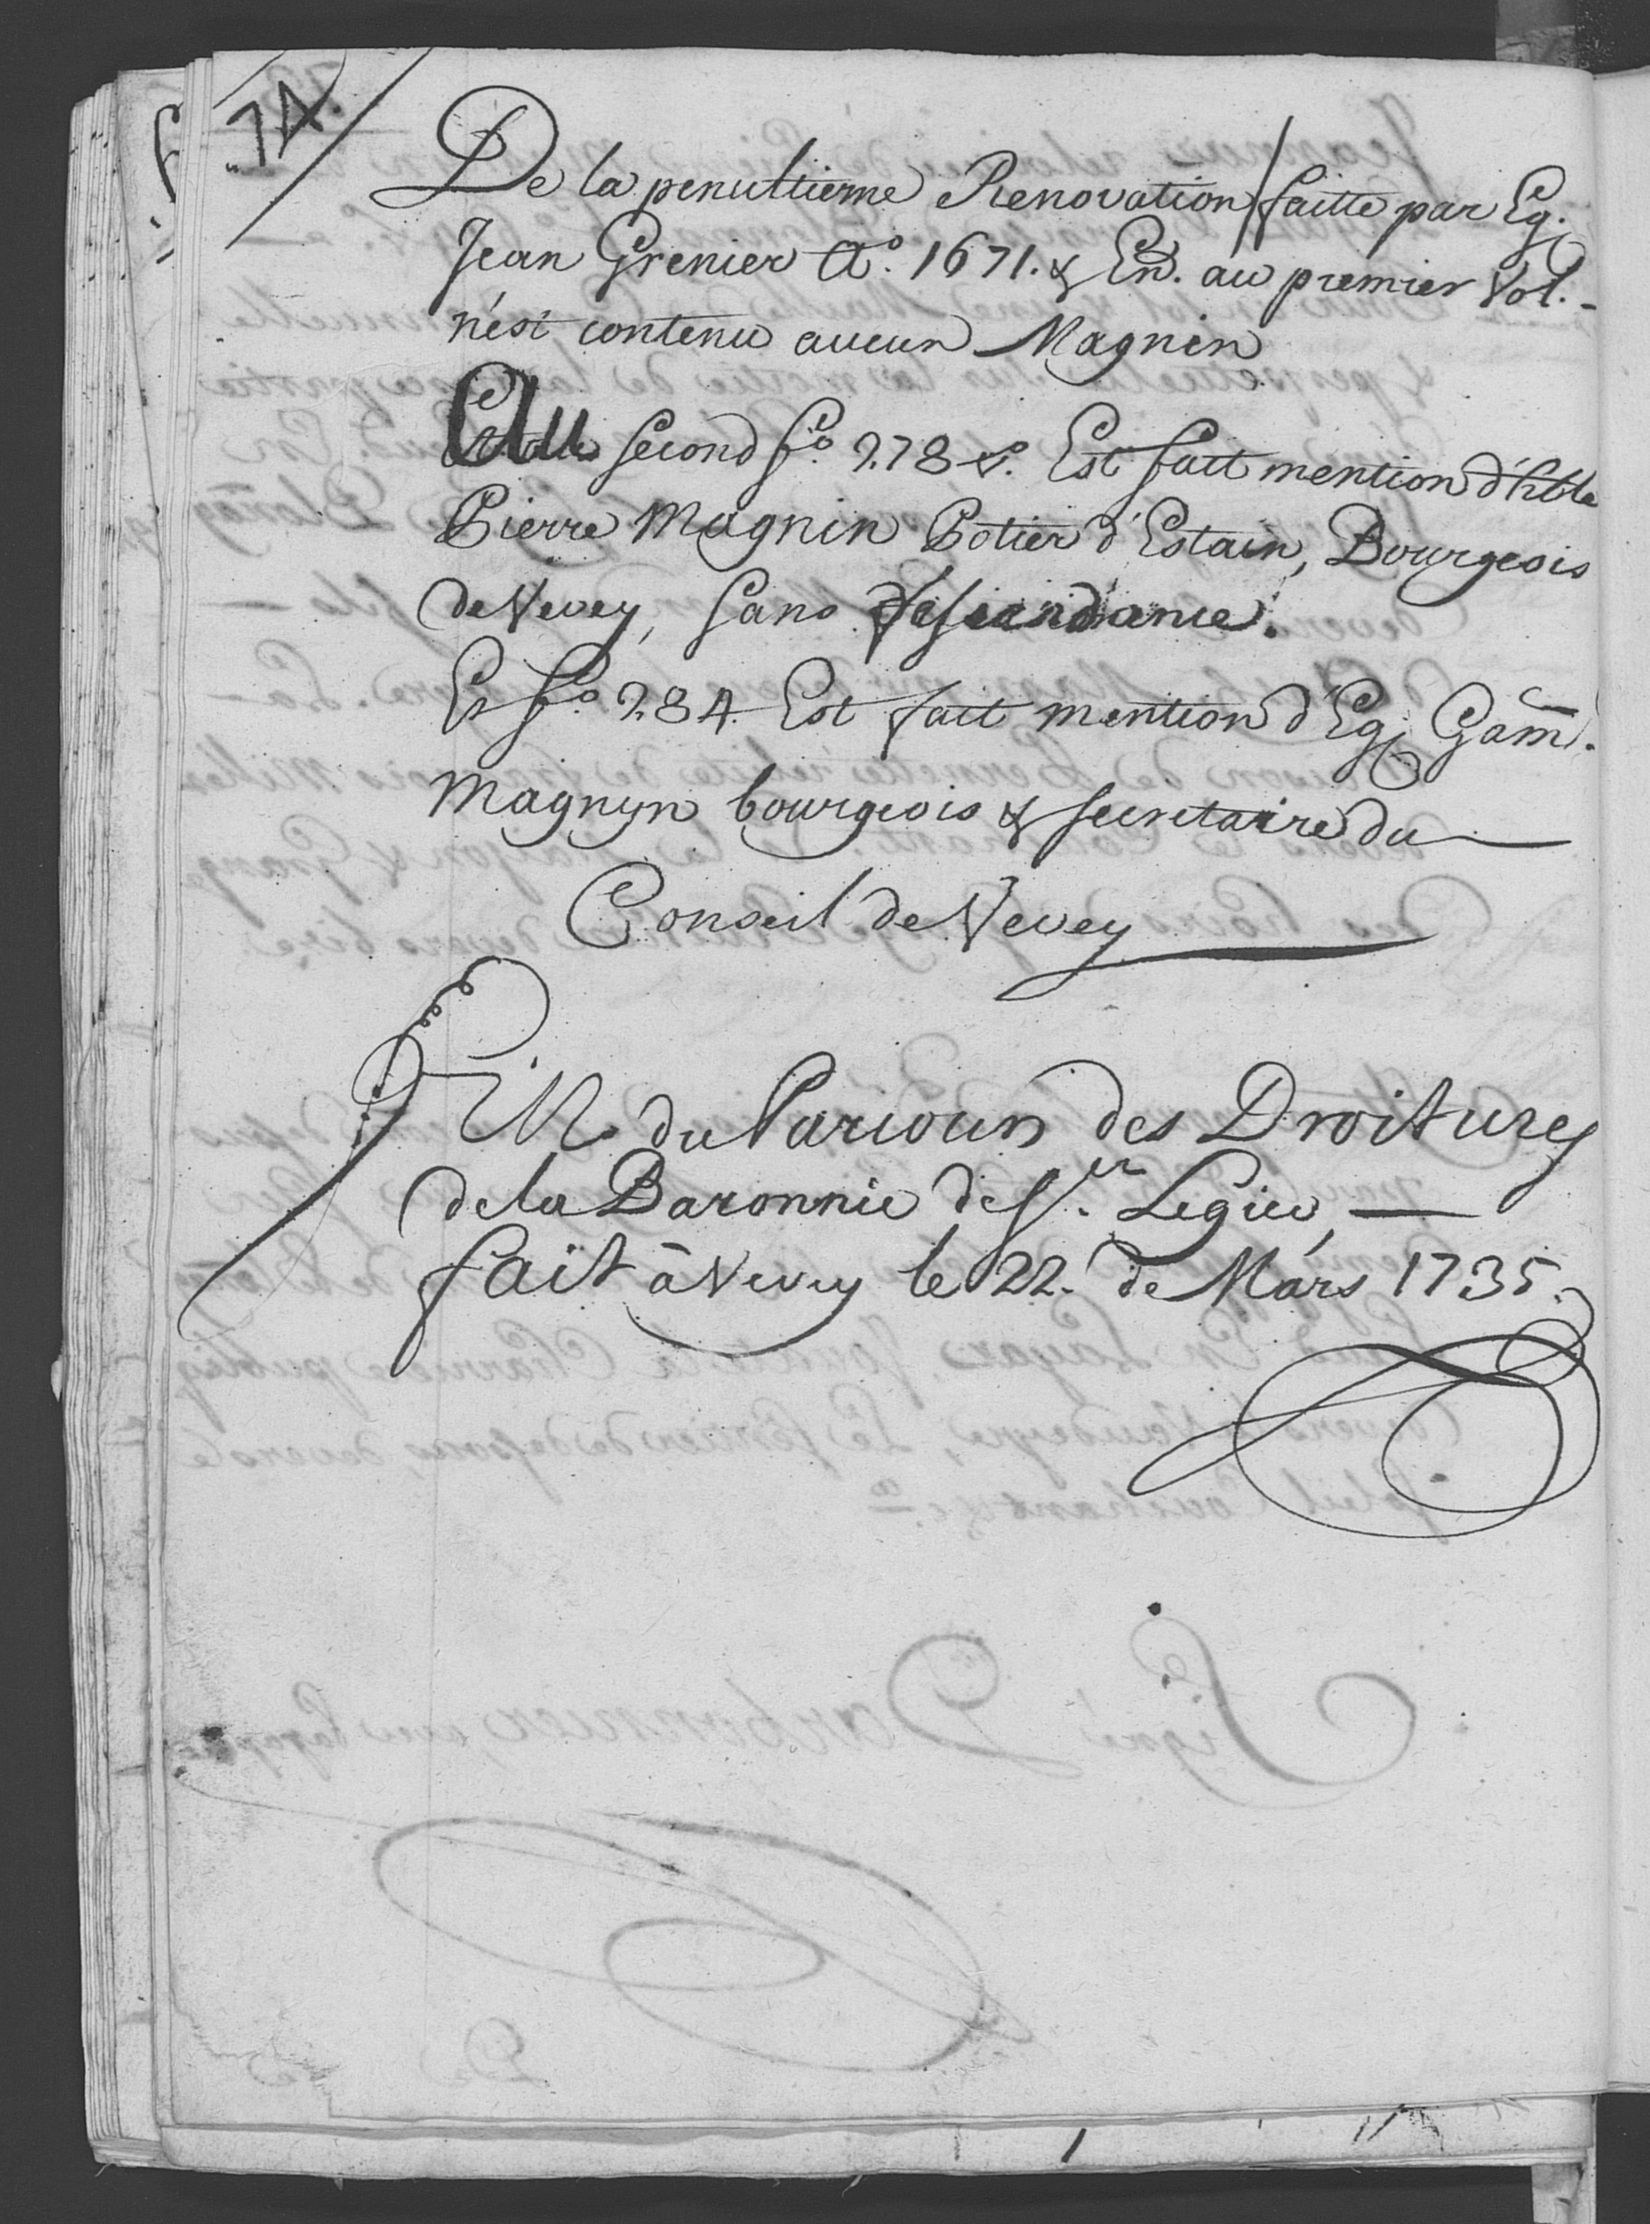 74.
De la penultieme Renovation / faitte par Eg.
Jean Grenier Ao. 1671. & En. au premier Vol. -
n'est contenu aucun Magnin
Au second fo. 278 vo. Est fait mention d'hble
Pierre Magnin Potier d'Estain, Bourgeois
de Vevey, sans descendance.
Et fo. 284. Est fait mention d'Eg. Gam̄.
Magnyn bourgeois & secretaire du
Conseil de Vevey
Fin du Parcours des Droitures
de la Baronnie de St. Legier,
fait à Vevey le 22. de Mars 1735.